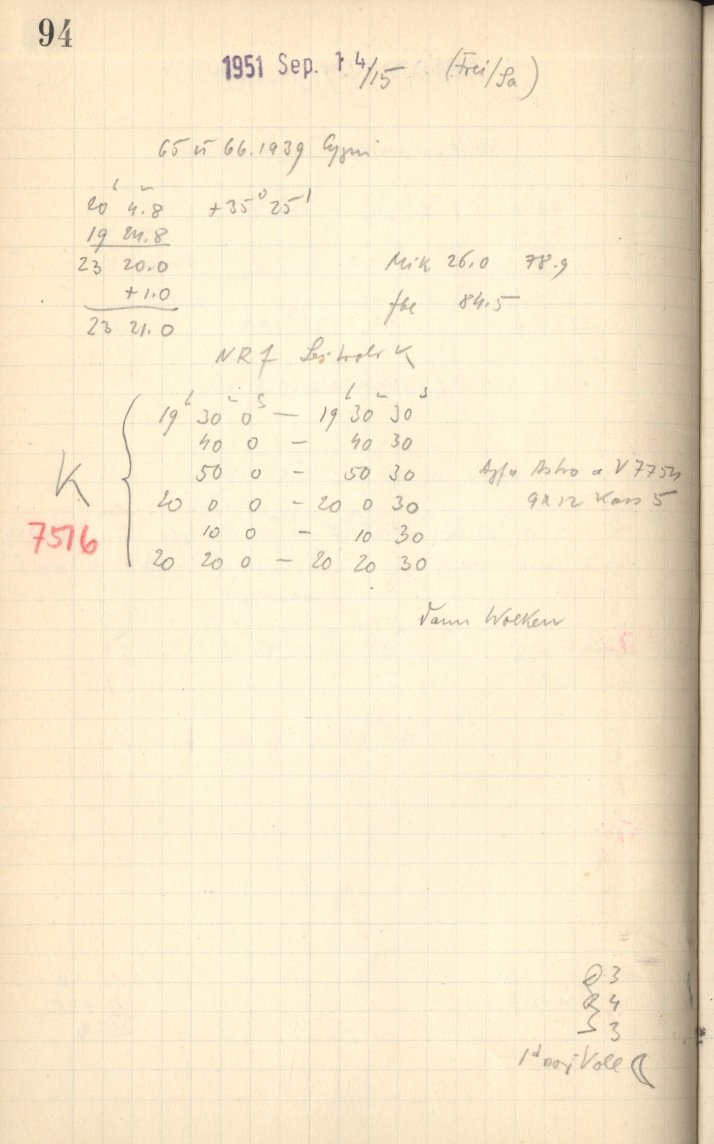 94
1951 Sep. 14/15 (Frei/Sa)
65 u 66.1939 Cygni
20ʰ 4ᵐ.8 +35° 25'
19 24.8
23 20.0
+1.0
23 21.0
Mik 26.0 78.9
fbe 84.5
NRf K
19ʰ 30ᵐ 0ˢ — 19ʰ 30ᵐ 30ˢ
40 0 — 40 30
50 0 — 50 30
20 0 0 — 20 0 30
10 0 — 10 30
20 20 0 — 20 20 30
K
7516
Agfa Astro
9x12 Kass 5
dann Wolken
3
R 4
S 3
1ᵈ vor Voll ☾